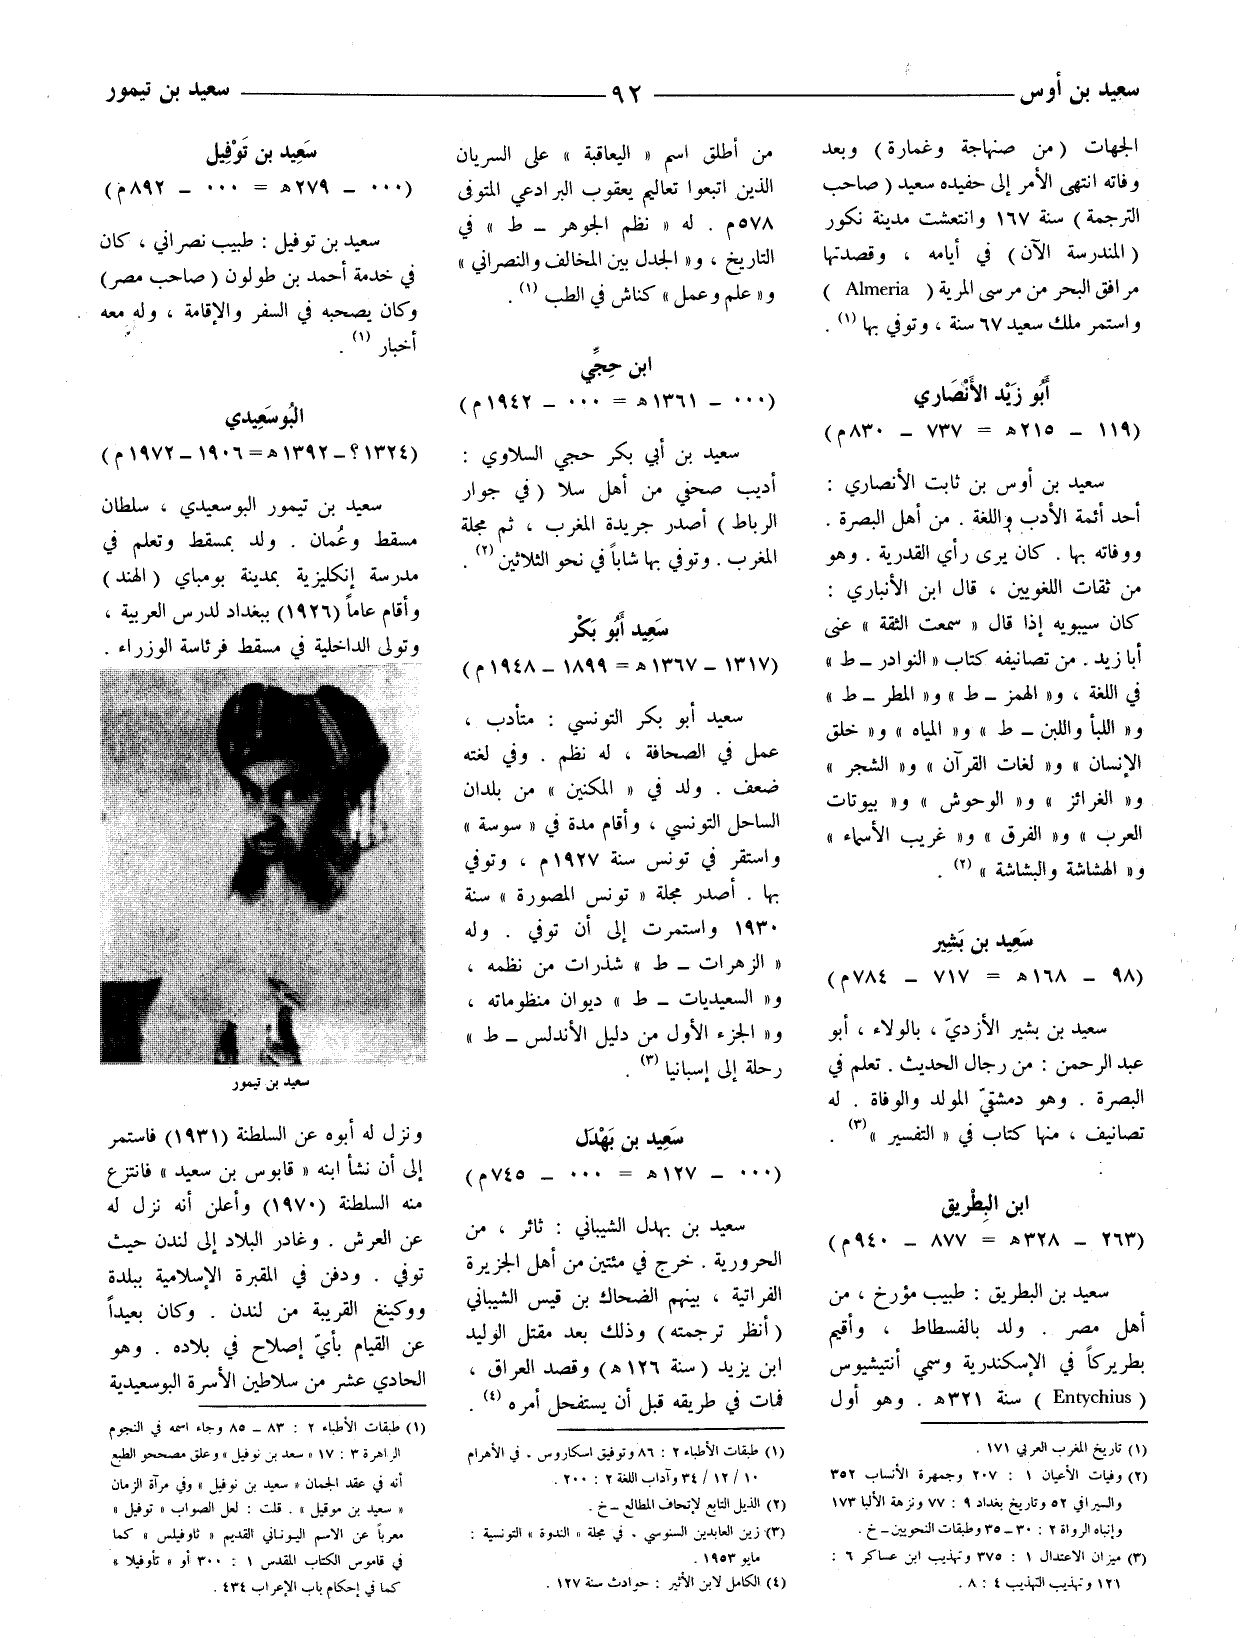 سعيد بن أوس ــــــ ٩٢ ــــــ سعيد بن تيمور
الجهات (من صنهاجة وغمارة) وبعد
وفاته انتهى الأمر إلى حفيده سعيد (صاحب
الترجمة) سنة ١٦٧ وانتعشت مدينة نكور
(المندرسة الآن) في أيامه ، وقصدتها
مرافق البحر من مرسى المرية ( Almeria )
واستمر ملك سعيد ٦٧ سنة ، وتوفي بها (١) .
أَبُو زَيْد الأَنْصَاري
(١١٩ ــ ٢١٥ه = ٧٣٧ ــ ٨٣٠م)
سعيد بن أوس بن ثابت الأنصاري :
أحد أئمة الأدب واللغة . من أهل البصرة .
ووفاته بها . كان يرى رأي القدرية . وهو
من ثقات اللغويين ، قال ابن الأنباري :
كان سيبويه إذا قال « سمعت الثقة » عنى
أبا زيد . من تصانيفه كتاب « النوادر ــ ط »
في اللغة ، و« الهمز ــ ط » و« المطر ــ ط »
و« اللبأ واللبن ــ ط » و« المياه » و« خلق
الإنسان » و« لغات القرآن » و« الشجر »
و« الغرائز » و« الوحوش » و« بيوتات
العرب » و« الفرق » و« غريب الأسماء »
و« الهشاشة والبشاشة » (٢) .
سَعِيد بن بَشِير
(٩٨ ــ ١٦٨ه = ٧١٧ ــ ٧٨٤م)
سعيد بن بشير الأزديّ ، بالولاء ، أبو
عبد الرحمن : من رجال الحديث . تعلم في
البصرة . وهو دمشقيّ المولد والوفاة . له
تصانيف ، منها كتاب في « التفسير » (٣) .
ابن البِطْريق
(٢٦٣ ــ ٣٢٨ه = ٨٧٧ ــ ٩٤٠م)
سعيد بن البطريق : طبيب مؤرخ ، من
أهل مصر . ولد بالفسطاط ، وأقيم
بطريركاً في الإسكندرية وسمي أنتيشيوس
( Entychius ) سنة ٣٢١ه . وهو أول
(١) تاريخ المغرب العربي ١٧١ .
(٢) وفيات الأعيان ١ : ٢٠٧ وجمهرة الأنساب ٣٥٢
والسيرافي ٥٢ وتاريخ بغداد ٩ : ٧٧ ونزهة الألبا ١٧٣
وإنباه الرواة ٢ : ٣٠ ــ ٣٥ وطبقات النحويين ــ خ .
(٣) ميزان الاعتدال ١ : ٣٧٥ وتهذيب ابن عساكر ٦ :
١٢١ وتهذيب التهذيب ٤ : ٨ .
من أطلق اسم « اليعاقبة » على السريان
الذين اتبعوا تعاليم يعقوب البرادعي المتوفى
٥٧٨م . له « نظم الجوهر ــ ط » في
التاريخ ، و« الجدل بين المخالف والنصراني »
و« علم وعمل » كناش في الطب (١) .
ابن حِجِّي
(٠٠٠ ــ ١٣٦١ه = ٠٠٠ ــ ١٩٤٢م)
سعيد بن أبي بكر حجي السلاوي :
أديب صحفي من أهل سلا (في جوار
الرباط) أصدر جريدة المغرب ، ثم مجلة
المغرب . وتوفي بها شاباً في نحو الثلاثين (٢) .
سَعِيد أَبُو بَكْر
(١٣١٧ ــ ١٣٦٧ه = ١٨٩٩ ــ ١٩٤٨م)
سعيد أبو بكر التونسي : متأدب ،
عمل في الصحافة ، له نظم . وفي لغته
ضعف . ولد في « المكنين » من بلدان
الساحل التونسي ، وأقام مدة في « سوسة »
واستقر في تونس سنة ١٩٢٧م ، وتوفي
بها . أصدر مجلة « تونس المصورة » سنة
١٩٣٠ واستمرت إلى أن توفي . وله
« الزهرات ــ ط » شذرات من نظمه ،
و« السعيديات ــ ط » ديوان منظوماته ،
و« الجزء الأول من دليل الأندلس ــ ط »
رحلة إلى إسبانيا (٣) .
سَعِيد بن بَهْدَل
(٠٠٠ ــ ١٢٧ه = ٠٠٠ ــ ٧٤٥م)
سعيد بن بهدل الشيباني : ثائر ، من
الحرورية . خرج في مئتين من أهل الجزيرة
الفراتية ، بينهم الضحاك بن قيس الشيباني
(أنظر ترجمته) وذلك بعد مقتل الوليد
ابن يزيد (سنة ١٢٦ه) وقصد العراق ،
فمات في طريقه قبل أن يستفحل أمره (٤) .
(١) طبقات الأطباء ٢ : ٨٦ وتوفيق اسكاروس . في الأهرام
١٠ / ١٢ / ٣٤ وآداب اللغة ٢ : ٢٠٠ .
(٢) الذيل التابع لإتحاف المطالع ــ خ .
(٣) زين العابدين السنوسي . في مجلة « الندوة » التونسية :
مايو ١٩٥٣ .
(٤) الكامل لابن الأثير : حوادث سنة ١٢٧ .
سَعِيد بن تَوْفِيل
(٠٠٠ ــ ٢٧٩ه = ٠٠٠ ــ ٨٩٢م)
سعيد بن توفيل : طبيب نصراني ، كان
في خدمة أحمد بن طولون (صاحب مصر)
وكان يصحبه في السفر والإقامة ، وله معه
أخبار (١) .
البُوسَعِيدي
(١٣٢٤؟ ــ ١٣٩٢ه = ١٩٠٦ ــ ١٩٧٢م)
سعيد بن تيمور البوسعيدي ، سلطان
مسقط وعُمان . ولد بمسقط وتعلم في
مدرسة إنكليزية بمدينة بومباي (الهند)
وأقام عاماً (١٩٢٦) ببغداد لدرس العربية ،
وتولى الداخلية في مسقط فرئاسة الوزراء .
سعيد بن تيمور
ونزل له أبوه عن السلطنة (١٩٣١) فاستمر
إلى أن نشأ ابنه « قابوس بن سعيد » فانتزع
منه السلطنة (١٩٧٠) وأعلن أنه نزل له
عن العرش . وغادر البلاد إلى لندن حيث
توفي . ودفن في المقبرة الإسلامية ببلدة
ووكينغ القريبة من لندن . وكان بعيداً
عن القيام بأيّ إصلاح في بلاده . وهو
الحادي عشر من سلاطين الأسرة البوسعيدية
(١) طبقات الأطباء ٢ : ٨٣ ــ ٨٥ وجاء اسمه في النجوم
الزاهرة ٣ : ١٧ « سعد بن نوفيل » وعلق مصححو الطبع
أنه في عقد الجمان « سعيد بن نوفيل » وفي مرآة الزمان
« سعيد بن موقيل » . قلت : لعل الصواب « توفيل »
معرباً عن الاسم اليوناني القديم « ثاوفيلس » كما
في قاموس الكتاب المقدس ١ : ٣٠٠ أو « تأوفيلا »
كما في إحكام باب الإعراب ٤٣٤ .